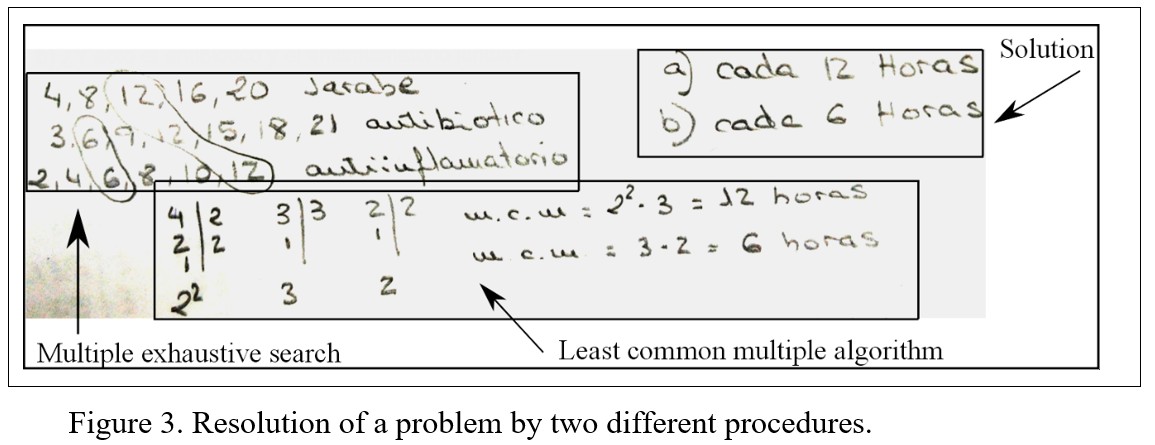 4,8,12,16,20 Jarabe
3,6,9,12,15,18,21 antibiotico
2,4,6,8,10,12 antiinflamatorio
a) cada 12 Horas
b) cada 6 Horas
Solution
4|2 3|3 2|2 m.c.m = 2².3 = 12 horas
2|2 1| 1| m.c.m = 3.2 = 6 horas
1
2² 3 2
Multiple exhaustive search
Least common multiple algorithm
Figure 3. Resolution of a problem by two different procedures.